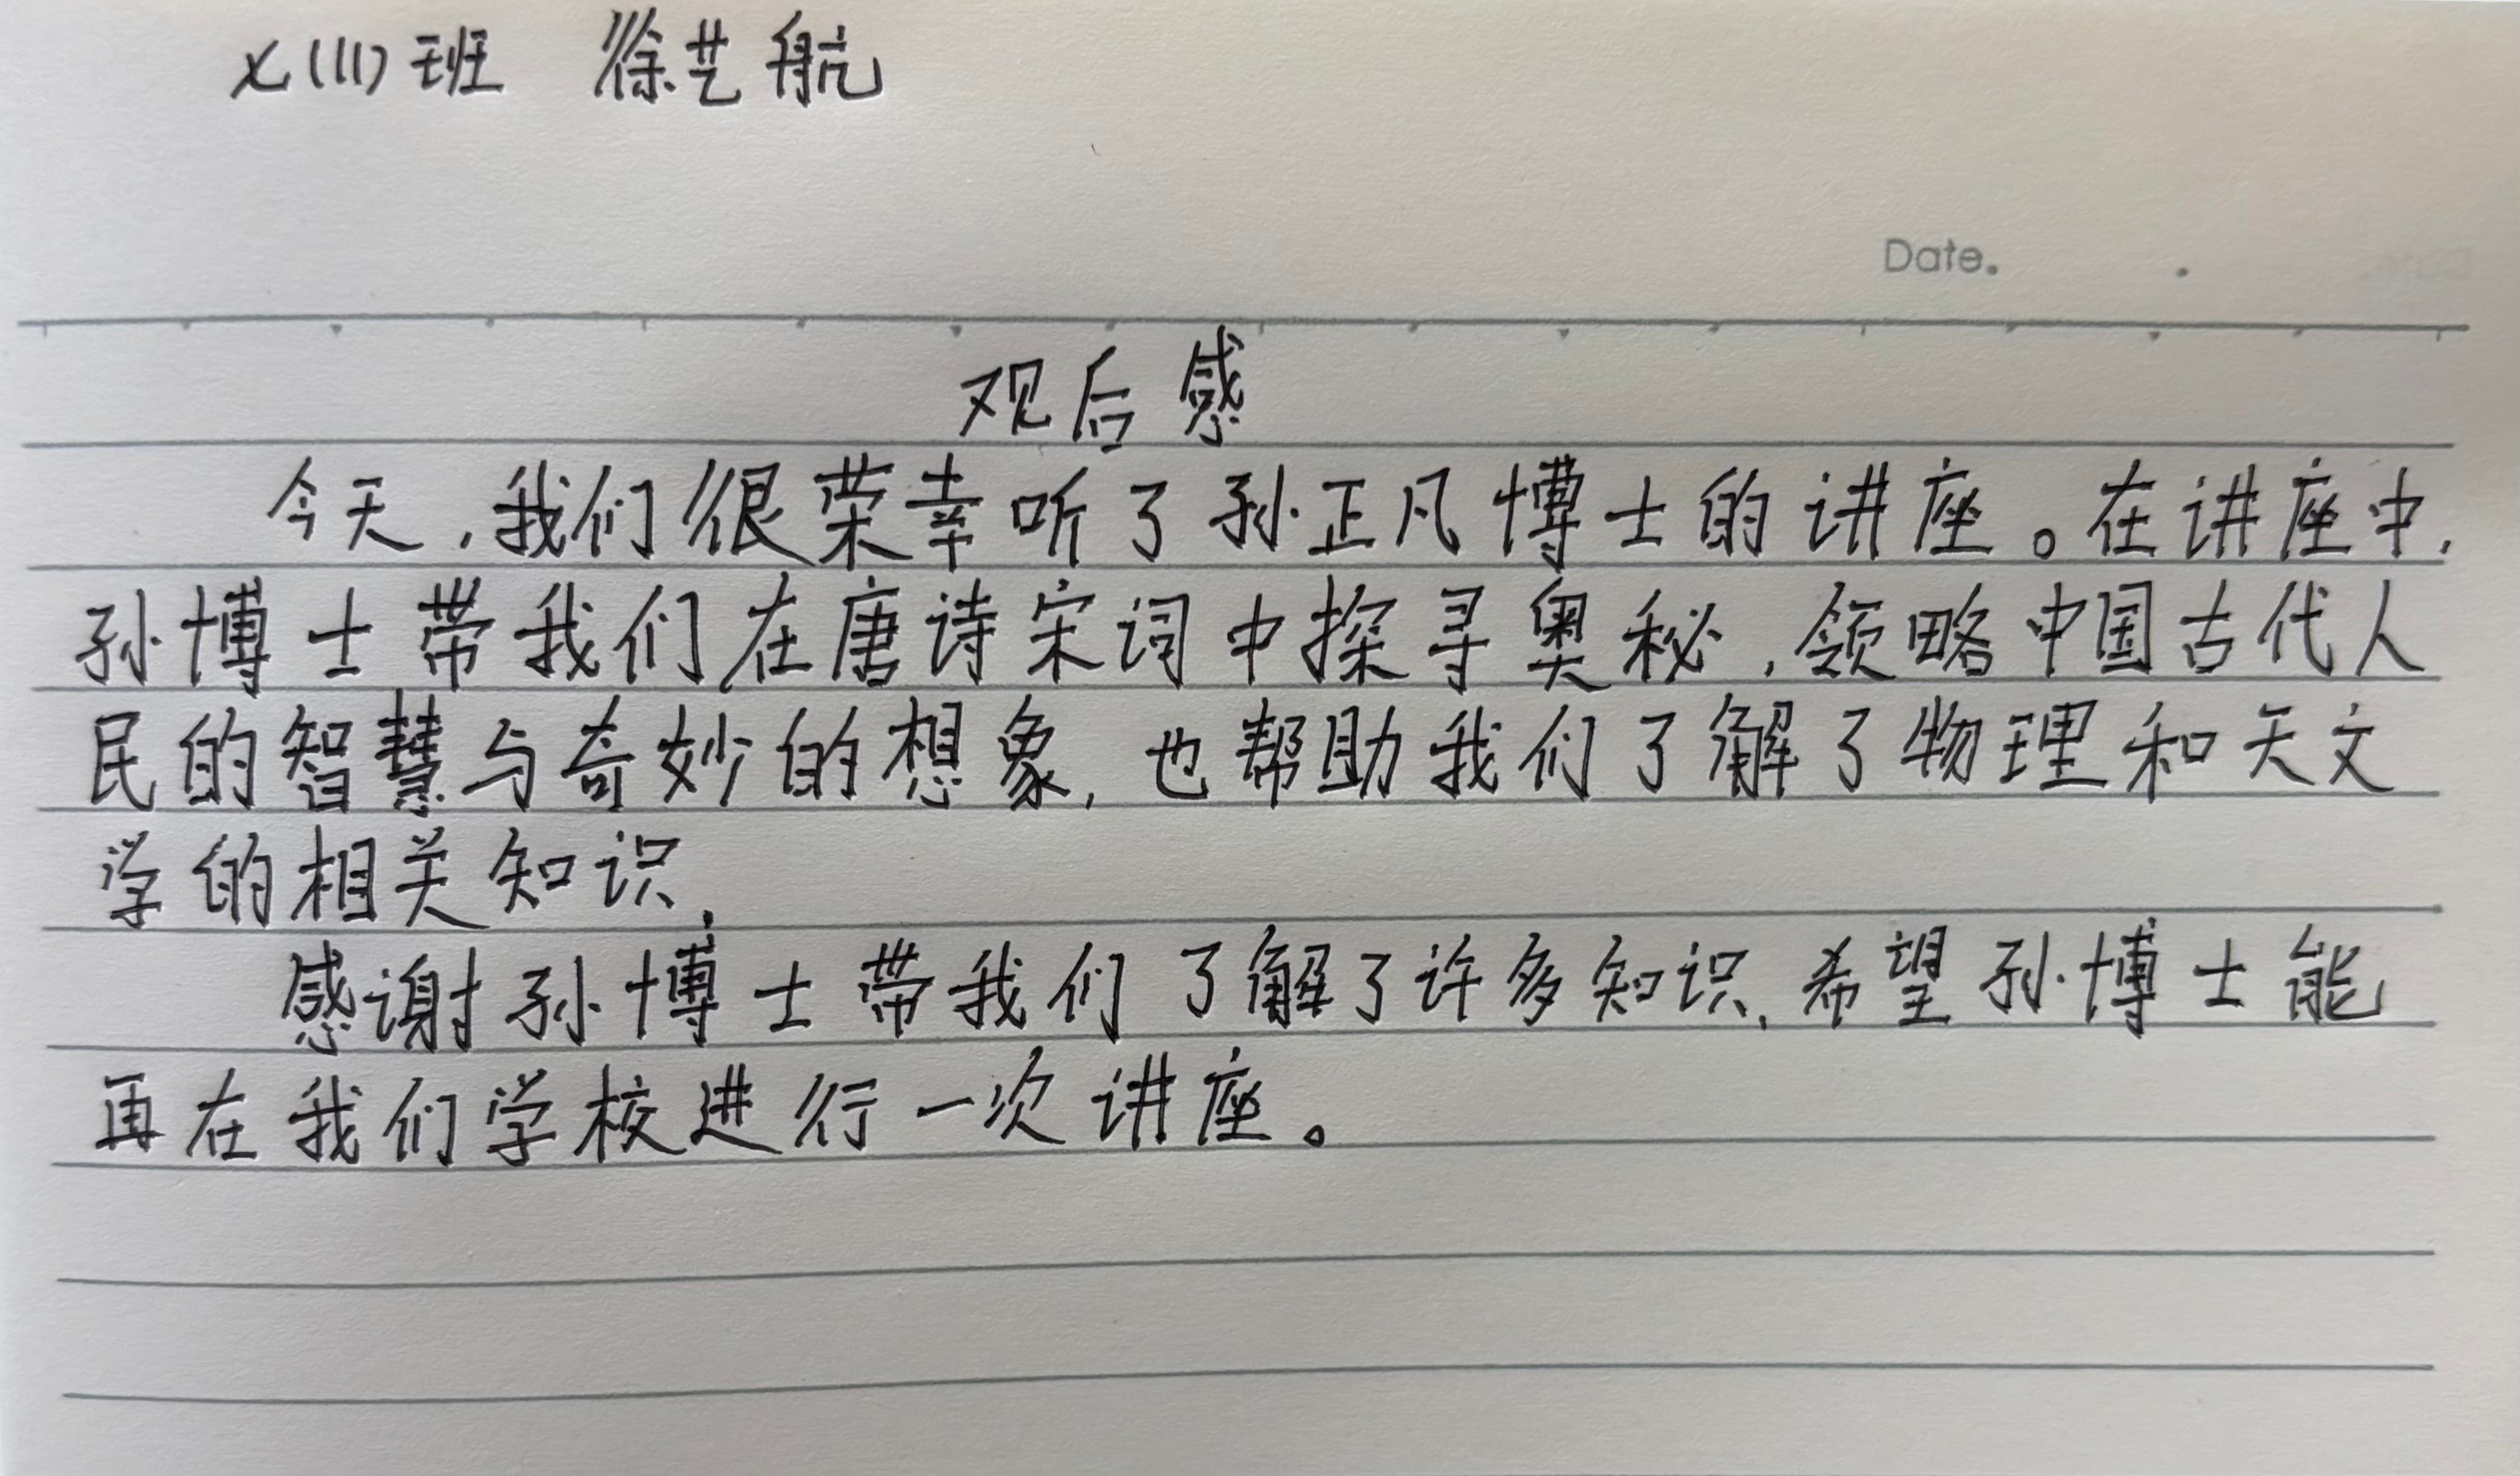 七(11)班 徐艺航
Date.
观后感
今天,我们很荣幸听了孙正凡博士的讲座。在讲座中,
孙博士带我们在唐诗宋词中探寻奥秘,领略中国古代人
民的智慧与奇妙的想象,也帮助我们了解了物理和天文
学的相关知识,
感谢孙博士带我们了解了许多知识,希望孙博士能
再在我们学校进行一次讲座。